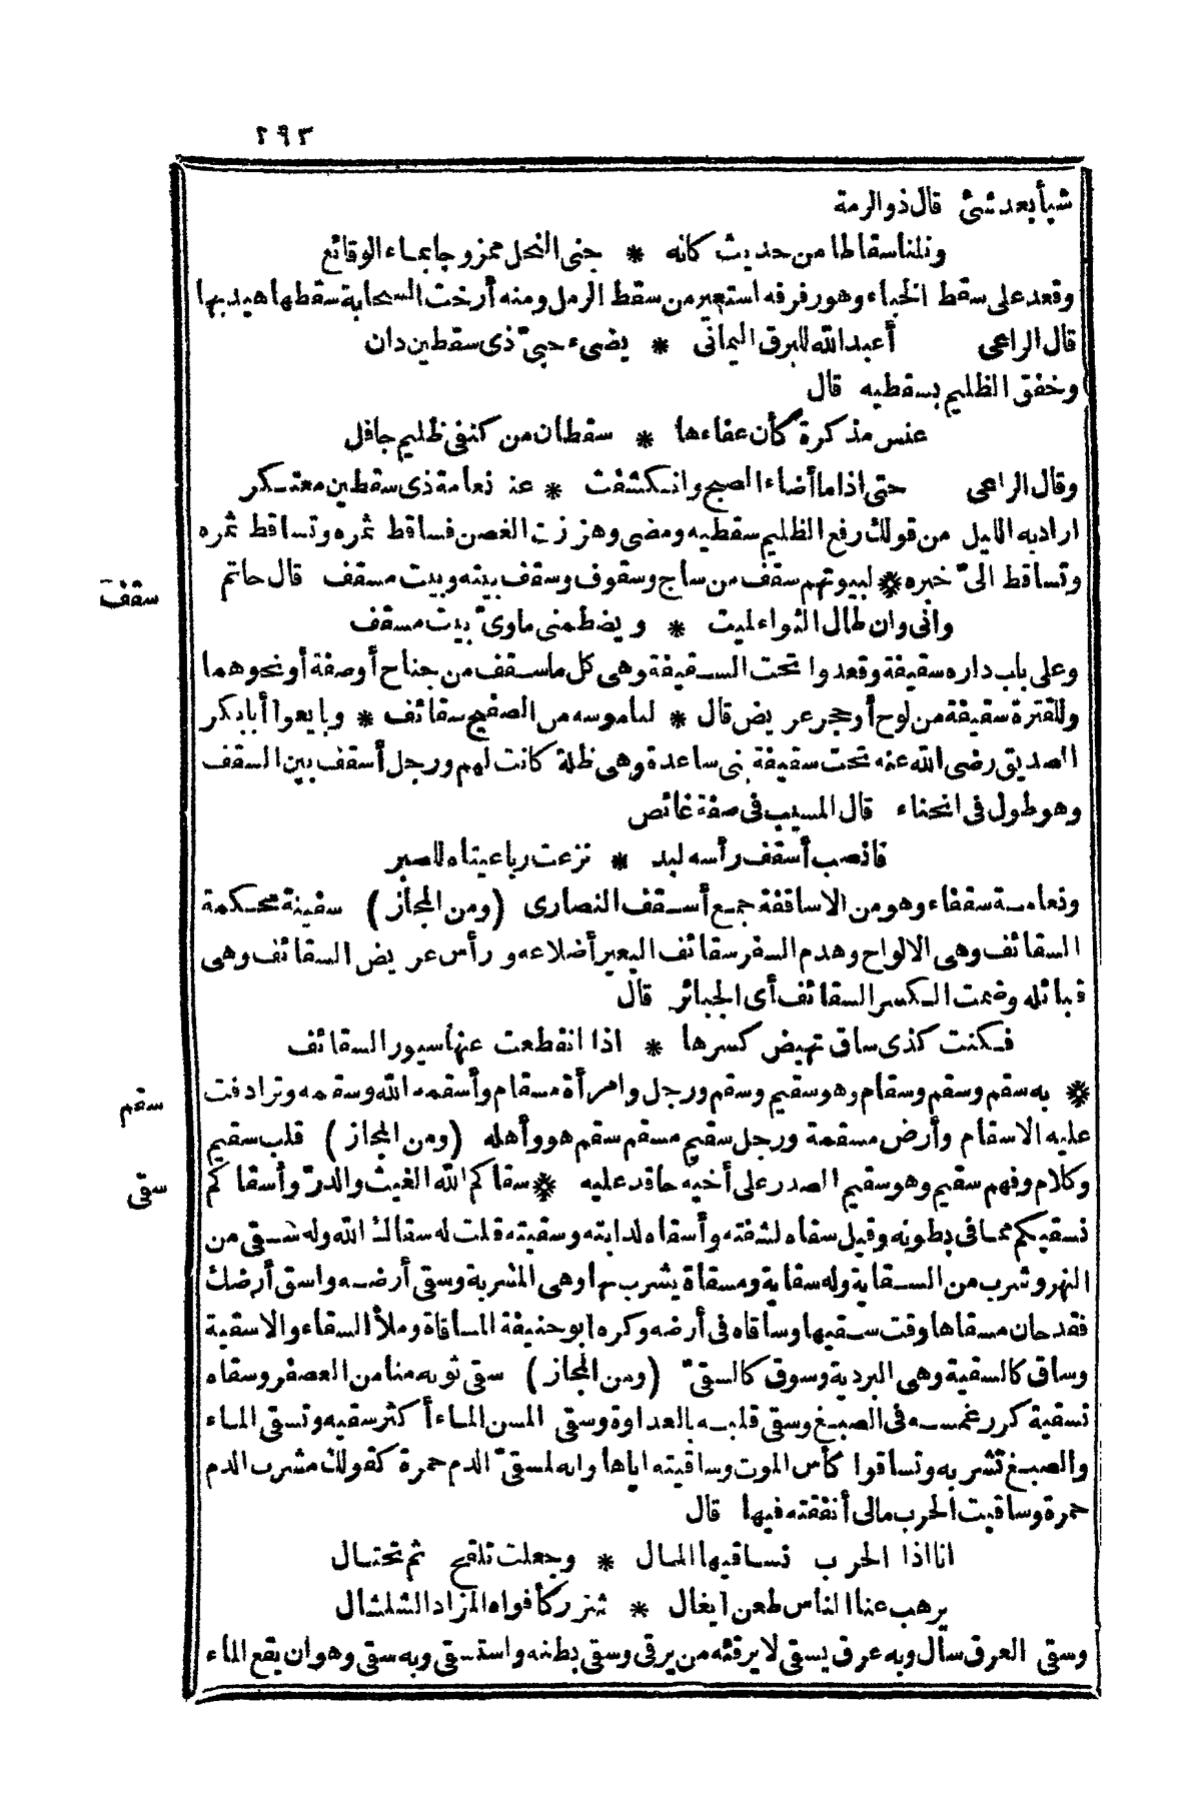 ٢٩٣
شيأ بعد شئ قال ذو الرمة
ونلنا سقاطا من حديث كانه * جنى النحل ممزوجا بماء الوقائع
وقعد على سقط الخباء وهو رفرفه استعير من سقط الرمل ومنه أرخت السحابة سقطها هيدبها
قال الراعى أعبد الله للبرق اليمانى * يضىء حبىّ ذى سقطين دان
وخفق الظليم بسقطيه قال
عنس مذكرة كأن عفاءها * سقطان من كنفى ظليم جافل
وقال الراعى حتى اذا ما أضاء الصبح وانكشفت * عنه نعامة ذى سقطين معتكر
اراد به الليل من قولك رفع الظليم سقطيه ومضى وهززت الغصن فساقط ثمره وتساقط ثمره
وتساقط الىّ خبره * لبيوتهم سقف من ساج وسقوف وسقف بيته وبيت مسقف قال حاتم
سقف
وانى وان طال الثواء لميت * ويضطمنى ماوىّ بيت مسقف
وعلى باب داره سقيفة وقعدوا تحت السقيفة وهى كل ما سقف من جناح أو صفة أو نحوهما
وللقترة سقيفة من لوح أو حجر عريض قال * لناموسه من الصفيح سقائف * وبايعوا أبا بكر
الصديق رضى الله عنه تحت سقيفة بنى ساعدة وهى ظلة كانت لهم ورجل أسقف بين السقف
وهو طول فى انحناء قال المسيب فى صفة غائص
فانصب أسقف رأسه لبد * نزعت رباعيتاه للصبر
ونعامة سقفاء وهو من الاساقفة جمع أسقف النصارى (ومن المجاز) سفينة محكمة
السقائف وهى الالواح وهدم السفر سقائف البعير أضلاعه ورأس عريض السقائف وهى
قبائله وضمت الكسر السقائف أى الجبائر قال
فكنت كذى ساق تهيض كسرها * اذا انقطعت عنها سيور السقائف
* به سقم وسقم وسقام وهو سقيم وسقم ورجل وامرأة مسقام وأسقمه الله وسقمه وترادفت
سقم
عليه الاسقام وأرض مسقمة ورجل سقيم مسقم سقم هو وأهله (ومن المجاز) قلب سقيم
وكلام وفهم سقيم وهو سقيم الصدر على أخيه حاقد عليه * سقاكم الله الغيث والدرّ وأسقاكم
سقى
نسقيكم مما فى بطونه وقيل سقاه لشفته وأسقاه لدابته وسقيته قلت له سقاك الله وله شقى من
النهر وشرب من السقاية وله سقاية ومسقاة يشرب بها وهى المشربة وسقى أرضه واسق أرضك
فقد حان مسقاها وقت سقيها وساقاه فى أرضه وكره ابو حنيفة المساقاة وملأ السقاء والاسقية
وساق كالسقية وهى البردية وسوق كالسقىّ (ومن المجاز) سقى ثوبه منا من العصفر وسقاه
تسقية كرر غمسه فى الصبغ وسقى قلبه بالعداوة وسقى المسن الماء أكثر سقيه وتسقى الماء
والصبغ تشربه وتساقوا كأس الموت وساقيته اياها وانه لمسقىّ الدم حمرة كقولك مشرب الدم
حمرة وساقيت الحرب مالى أنفقته فيها قال
انا اذا الحرب نساقيها المال * وجعلت تلقح ثم تحتال
يرهب عنا الناس طعن ايغال * شزر كأفواه المزاد الشلشال
وسقى العرق سال وبه عرق يسقى لا يرقئه من يرقى وسقى بطنه واستسقى وبه سقى وهو ان يقع الماء